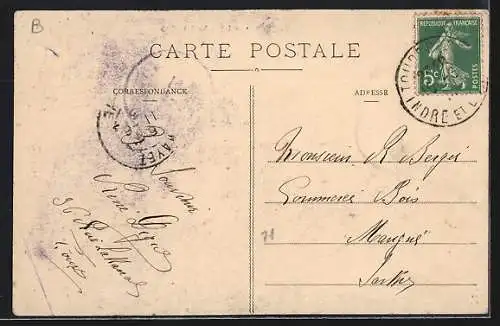 B
CARTE POSTALE
CORRESPONDANCE
ADRESSE
RÉPUBLIQUE FRANÇAISE
5c
POSTES
TOURS
INDRE ET L
Souvenir
René
36 Rue
Tours
Monsieur R Berger
Commerce Bois
Mangné
Sarthe
71